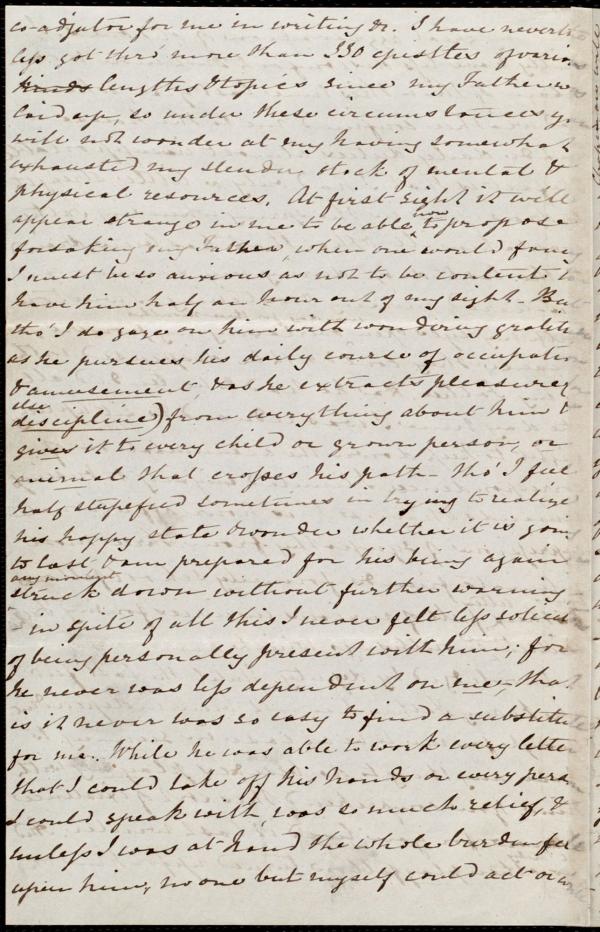 co-adjutor for me in writing &c. I have neverth
less got thro' more than 330 epistles of vario
kinds lengths & topics since my Father w
laid up, so under these circumstances yo
will not wonder at my having somewhat
exhausted my slender stock of mental &
physical resources. At first sight it will
appear strange in me to be able now to propose
forsaking my Father, when one would fancy
I must be so anxious as not to be content t
have him half an hour out of my sight - But
tho' I do gaze on him with wondering gratitu
as he pursues his daily course of occupation
& amusement, & as he extracts pleasure (&
else
discipline) from everything about him &
gives it to every child or grown person, or
animal that crosses his path - tho' I feel
half stupefied sometimes in trying to realize
his happy state & wonder whether it is going
to last & am prepared for his being again
any moment
struck down without further warning -
- in spite of all this I never felt less solicit
of being personally present with him; for
he never was less dependent on me, that
is it never was so easy to find a substitute
for me. While he was able to work every letter
that I could take off his hands or every person
I could speak with, was so much relief, &
unless I was at hand the whole burden fell
upon him, no one but myself could act or